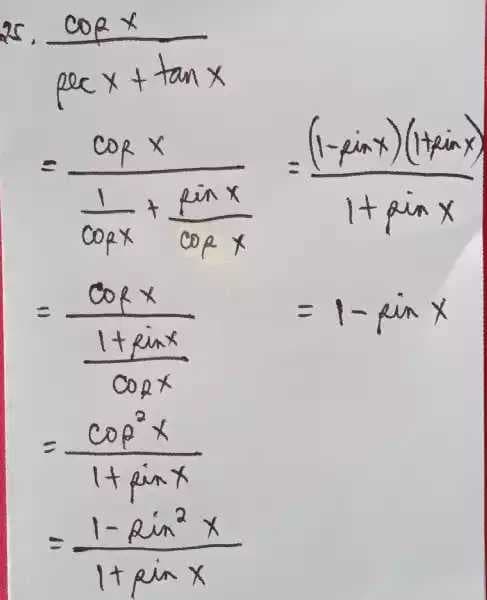 25. cos x / (sec x + tan x)
= cos x / (1/cos x + sin x/cos x)
= cos x / ((1 + sin x)/cos x)
= cos² x / (1 + sin x)
= (1 - sin² x) / (1 + sin x)
= (1 - sin x)(1 + sin x) / (1 + sin x)
= 1 - sin x